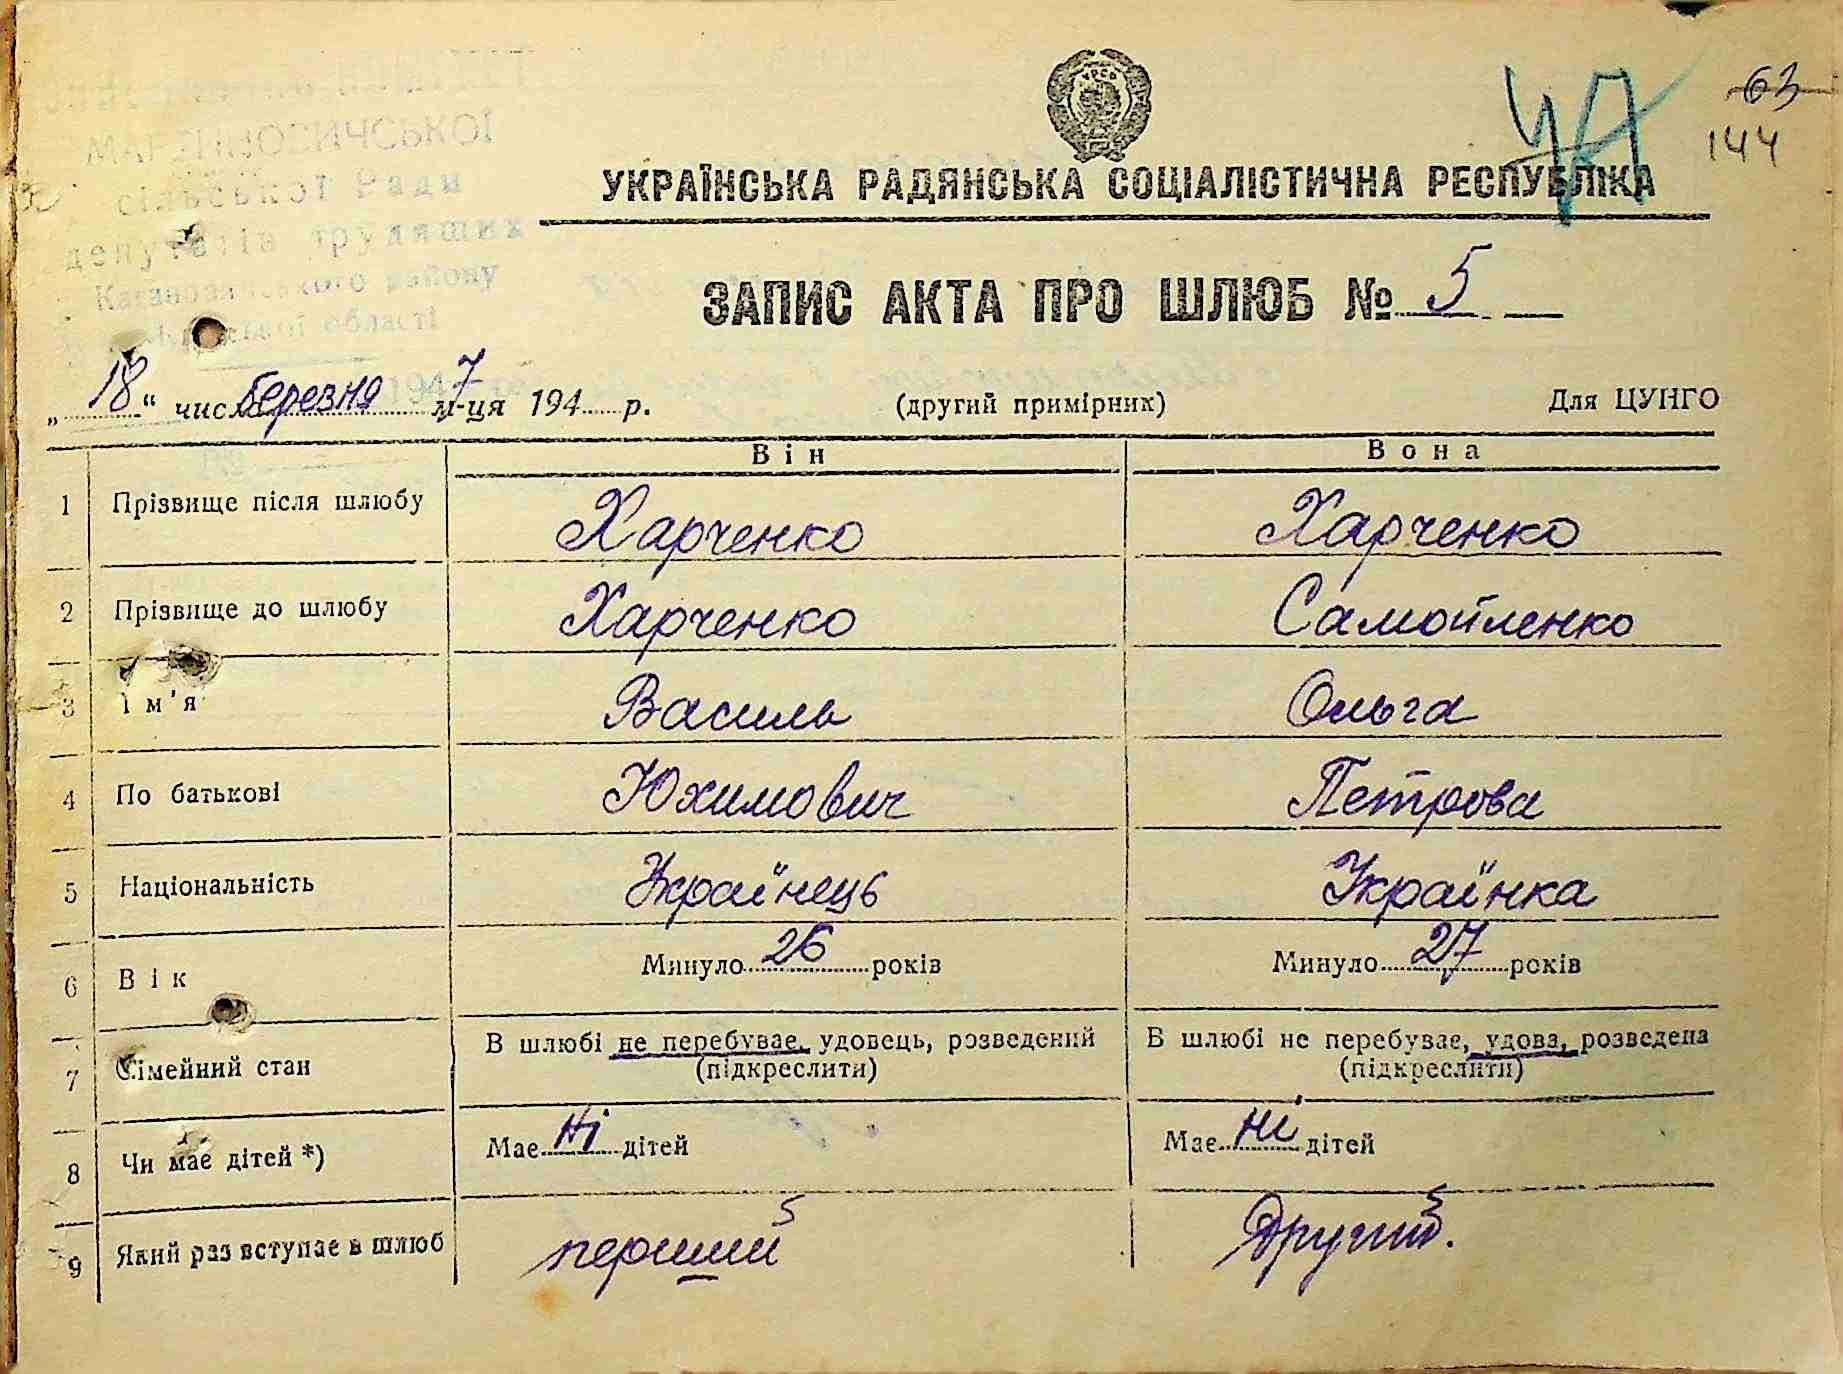 УРСР
63
144
УКРАЇНСЬКА РАДЯНСЬКА СОЦІАЛІСТИЧНА РЕСПУБЛІКА
сільської Ради
депутатів трудящих
району
області
ЗАПИС АКТА ПРО ШЛЮБ № 5
„18“ числа березня м-ця 1947 р. (другий примірник) Для ЦУНГО
Він Вона
1 Прізвище після шлюбу Харченко Харченко
2 Прізвище до шлюбу Харченко Самойленко
3 Ім'я Василь Ольга
4 По батькові Юхимович Петрова
5 Національність Українець Українка
6 Вік Минуло 26 років Минуло 27 років
7 Сімейний стан В шлюбі не перебуває, удовець, розведений В шлюбі не перебуває, удова, розведена
(підкреслити) (підкреслити)
8 Чи має дітей *) Має ні дітей Має ні дітей
9 Який раз вступає в шлюб перший Другий.